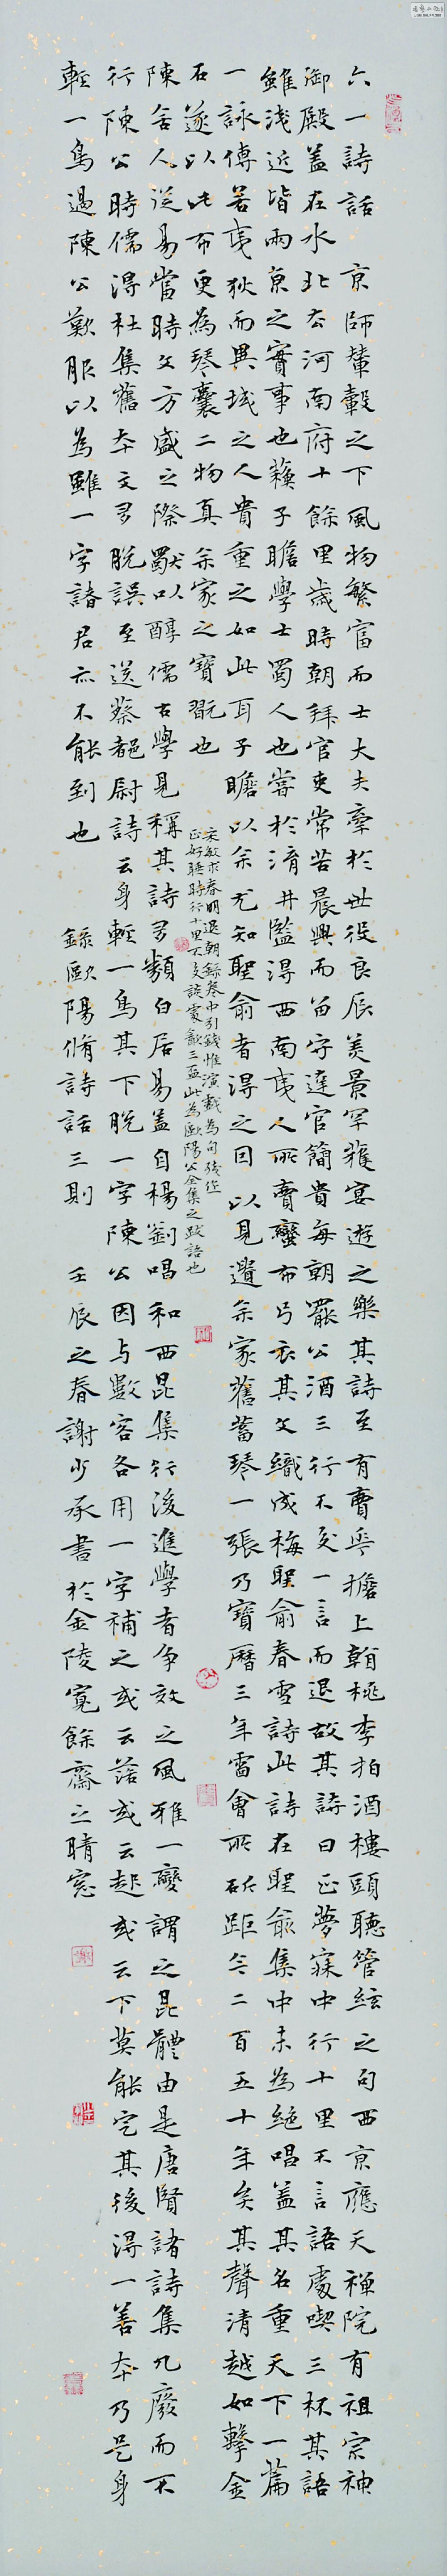 六一詩話 京師輦轂之下風物繁富而士大夫牽於世役良辰美景罕獲宴遊之樂其詩至有賣花擔上看桃李拍酒樓頭聽管絃之句西京應天禪院有祖宗神
御殿蓋在水北去河南府十餘里歲時朝拜官吏常苦晨興而留守達官簡貴每朝罷公酒三行不交一言而退故其詩曰正夢寐中行十里不言語處喫三杯其語
雖淺近皆兩京之實事也蘇子瞻學士蜀人也嘗於淯井監得西南夷人所賣蠻布弓衣其文織成梅聖俞春雪詩此詩在聖俞集中未為絕唱蓋其名重天下一篇
一詠傳落夷狄而異域之人貴重之如此耳子瞻以余尤知聖俞者得之因以見遺余家舊蓄琴一張乃寶曆三年雷會所斲距今二百五十年矣其聲清越如擊金
石遂以此布更為琴囊二物真余家之寶翫也
宋敏求春明退朝錄卷中引錢惟演戲為句殘作
正好睡時行十里不交談處飲三盃此為歐陽公全集之跋語也
陳舍人從易當時文方盛之際獨以醇儒古學見稱其詩多類白居易蓋自楊劉唱和西昆集行後進學者爭效之風雅一變謂之昆體由是唐賢諸詩集幾廢而不
行陳公時偶得杜集舊本文多脫誤至送蔡都尉詩云身輕一鳥其下脫一字陳公因與數客各用一字補之或云落或云起或云下莫能定其後得一善本乃是身
輕一鳥過陳公歎服以為雖一字諸君亦不能到也 錄歐陽脩詩話三則 壬辰之春謝少承書於金陵寬餘齋之晴窓